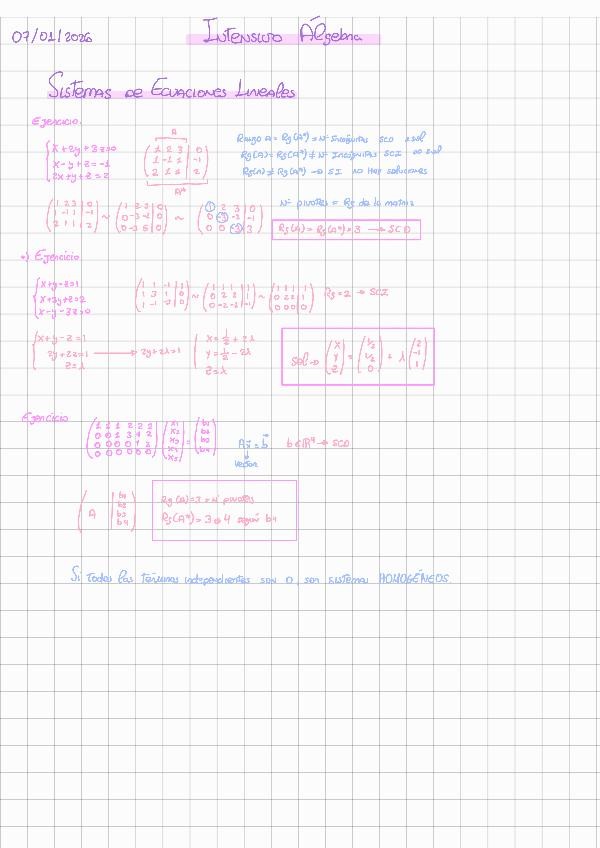 07/01/2026
Intensivo Álgebra
Sistemas de Ecuaciones Lineales
Ejercicio.
x+2y+3z=0
x-y+z=-1
2x+y+z=2
A
1 2 3 | 0
1 -1 1 | -1
2 1 1 | 2
A*
Rango A = Rg(A*) = Nº Incógnitas SCD
Rg(A) = Rg(A*) ≠ Nº Incógnitas SCI
Rg(A) ≠ Rg(A*) → SI No Hay soluciones
1 2 3 | 0
1 -1 1 | -1
2 1 1 | 2
~
~
Nº pivotes = Rg de la matriz
Rg(A) = Rg(A*) = 3 → SCD
Ejercicio
x+y-z=1
x+3y+z=2
x-y-3z=0
1 1 -1 | 1
1 3 1 | 2
1 -1 -3 | 0
~
~
Rg=2 → SCI
x+y-z=1
2y+2z=1 → 2y+2λ=1
z=λ
x=1/2+2λ
y=1/2-2λ
z=λ
Sol → (x y z) = (1/2 1/2 0) + λ (2 -1 1)
Ejercicio
1 1 1 2 2 2
0 0 1 3 1 2
0 0 0 0 1 2
0 0 0 0 0 0
x1
x2
x3
x4
x5
=
b1
b2
b3
b4
Ax = b
vector
b ∈ R⁴ → SCD
A
b1
b2
b3
b4
Rg(A)=3=Nº pivotes
Rg(A*)=3 o 4 según b4
Si todos los términos independientes son 0, son sistemas HOMOGÉNEOS.